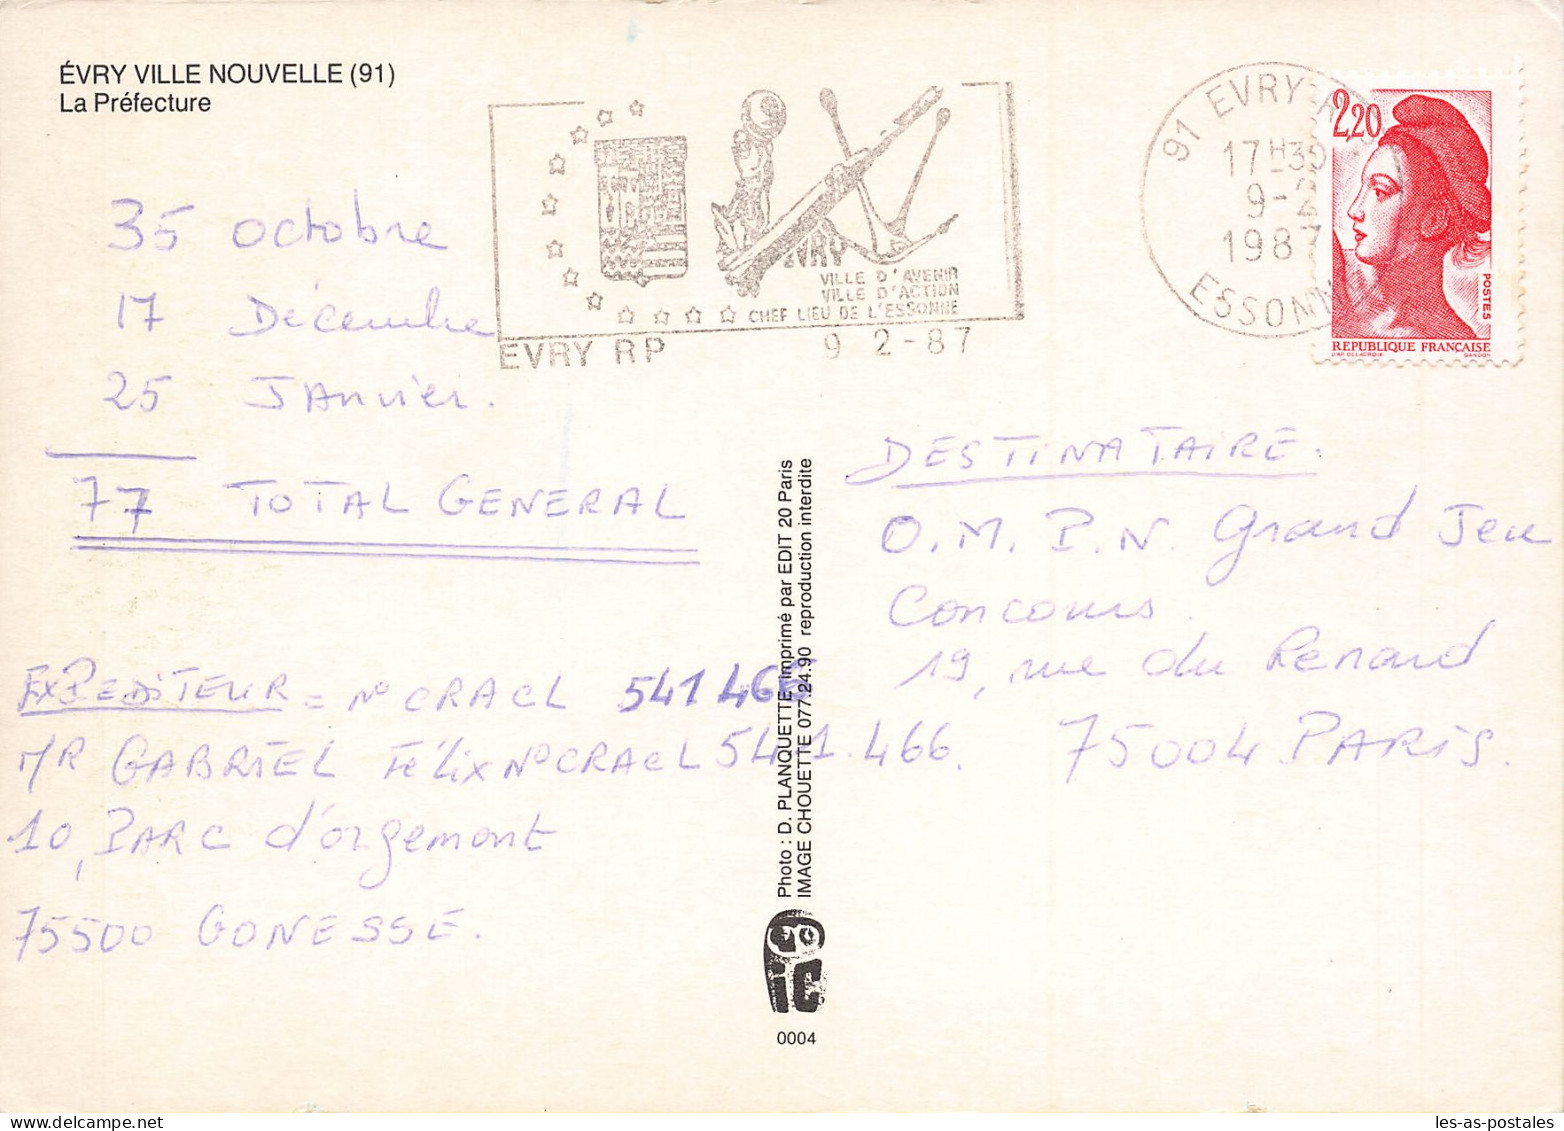 ÉVRY VILLE NOUVELLE (91)
La Préfecture
35 octobre
17 Décembre
25 Janvier.
77 TOTAL GENERAL
EXPEDITEUR = N° CRACL 541466
MR GABRIEL Félix N° CRACL 541.466.
10, PARC d'orgemont
75500 GONESSE.
EVRY
VILLE D'AVENIR
VILLE D'ACTION
CHEF LIEU DE L'ESSONNE
EVRY RP 9 2-87
91 EVRY R.P.
17H30
9-2
1987
ESSONNE
2,20
POSTES
REPUBLIQUE FRANÇAISE
D'AP. DELACROIX GANDON
DESTINATAIRE.
O.M.P.N. Grand Jeu
Concours.
19, rue du Renard
75004 PARIS.
Photo : D. PLANQUETTE imprimé par EDIT 20 Paris
IMAGE CHOUETTE 077.24.90 reproduction interdite
iC
0004
les-as-postales